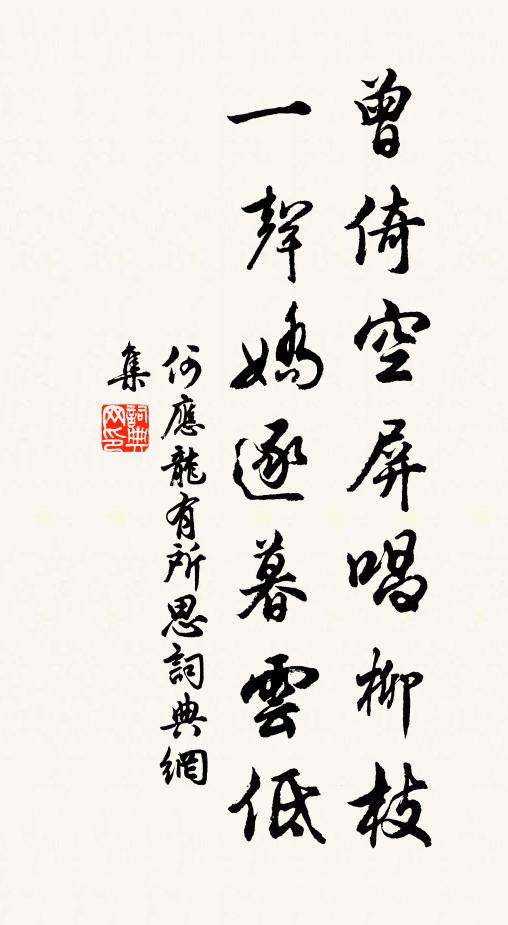 曾倚空屏唱柳枝
一聲嬌逐暮雲低
何應龍有所思詞典網
集
詞典
网印